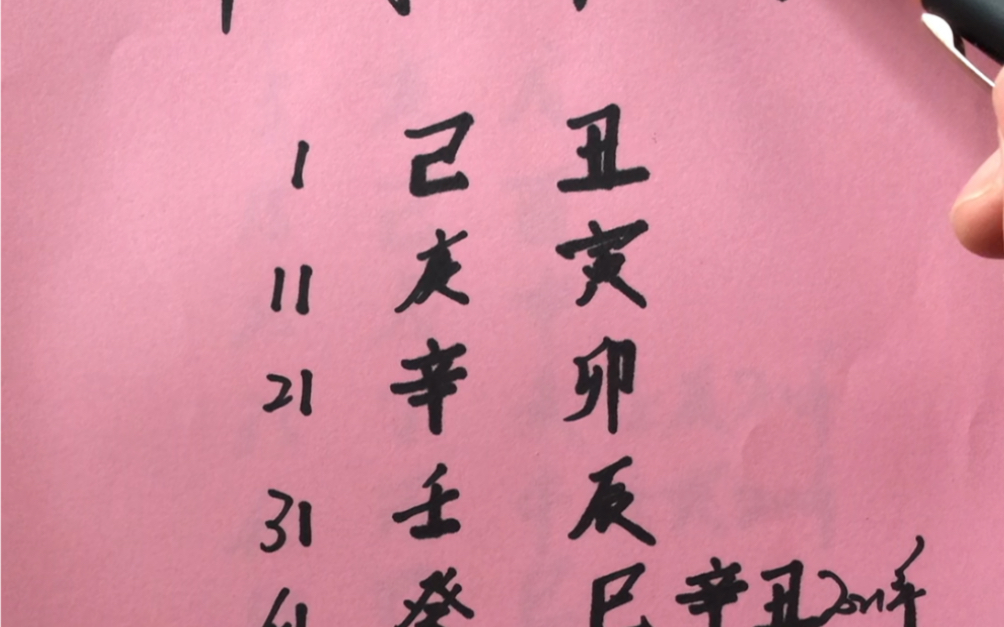 1 己 丑
11 庚 寅
21 辛 卯
31 壬 辰
41 癸 巳 辛丑2021年